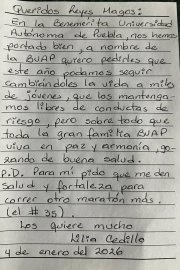 Queridos Reyes Magos:
En la Benemérita Universidad
Autónoma de Puebla, nos hemos
portado bien, a nombre de
la BUAP quiero pedirles que
este año podamos seguir
cambiándoles la vida a miles
de jóvenes, que los mantenga-
mos libres de conductas de
riesgo, pero sobre todo que
toda la gran familia BUAP
viva en paz y armonía, go-
zando de buena salud.
P.D. Para mí pido que me den
Salud y fortaleza para
correr otro maratón más.
(el # 35).
Los quiere mucho
Lilia Cedillo
4 de enero del 2026